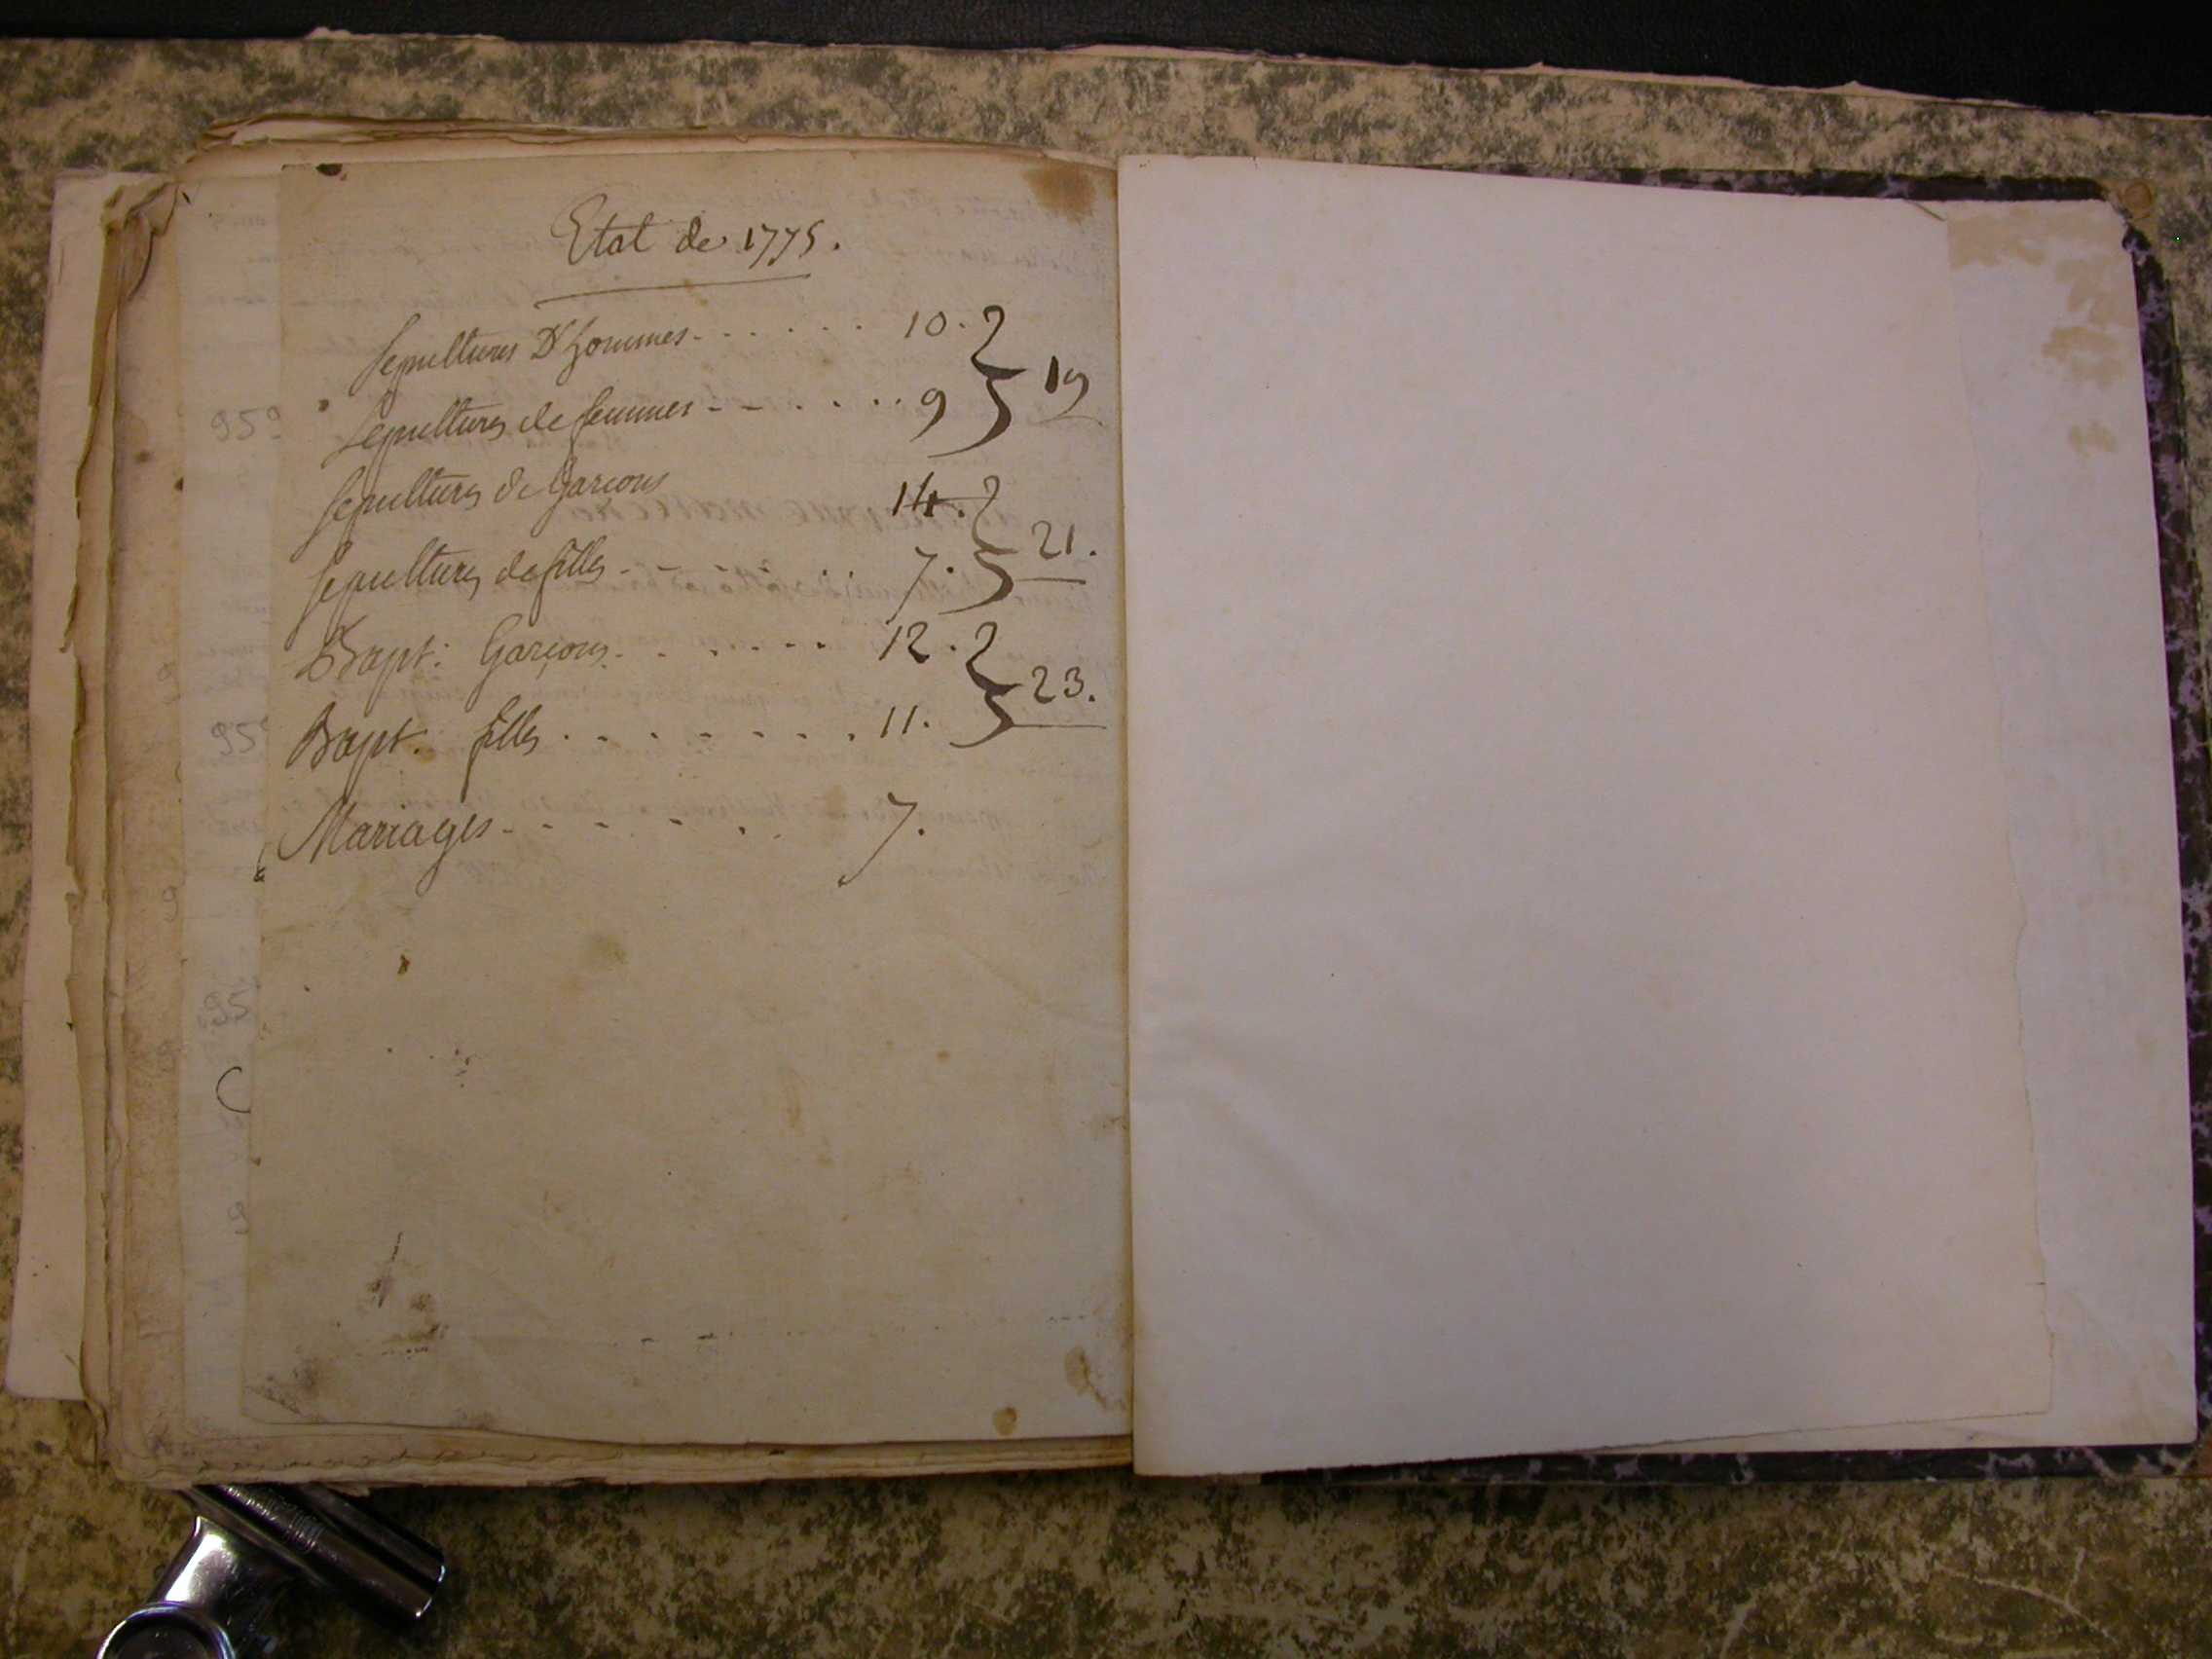 Etat de 1775.
Sepultures D'hommes - . . . . . 10. } 19
Sepultures de femmes - - . . . . 9
Sepultures de Garcons 14. } 21.
Sepultures de filles - - - . . . 7.
Bapt: Garçons. . . . . . . 12. } 23.
Bapt: filles . . . . . . . 11.
Mariages - - - - - . . 7.